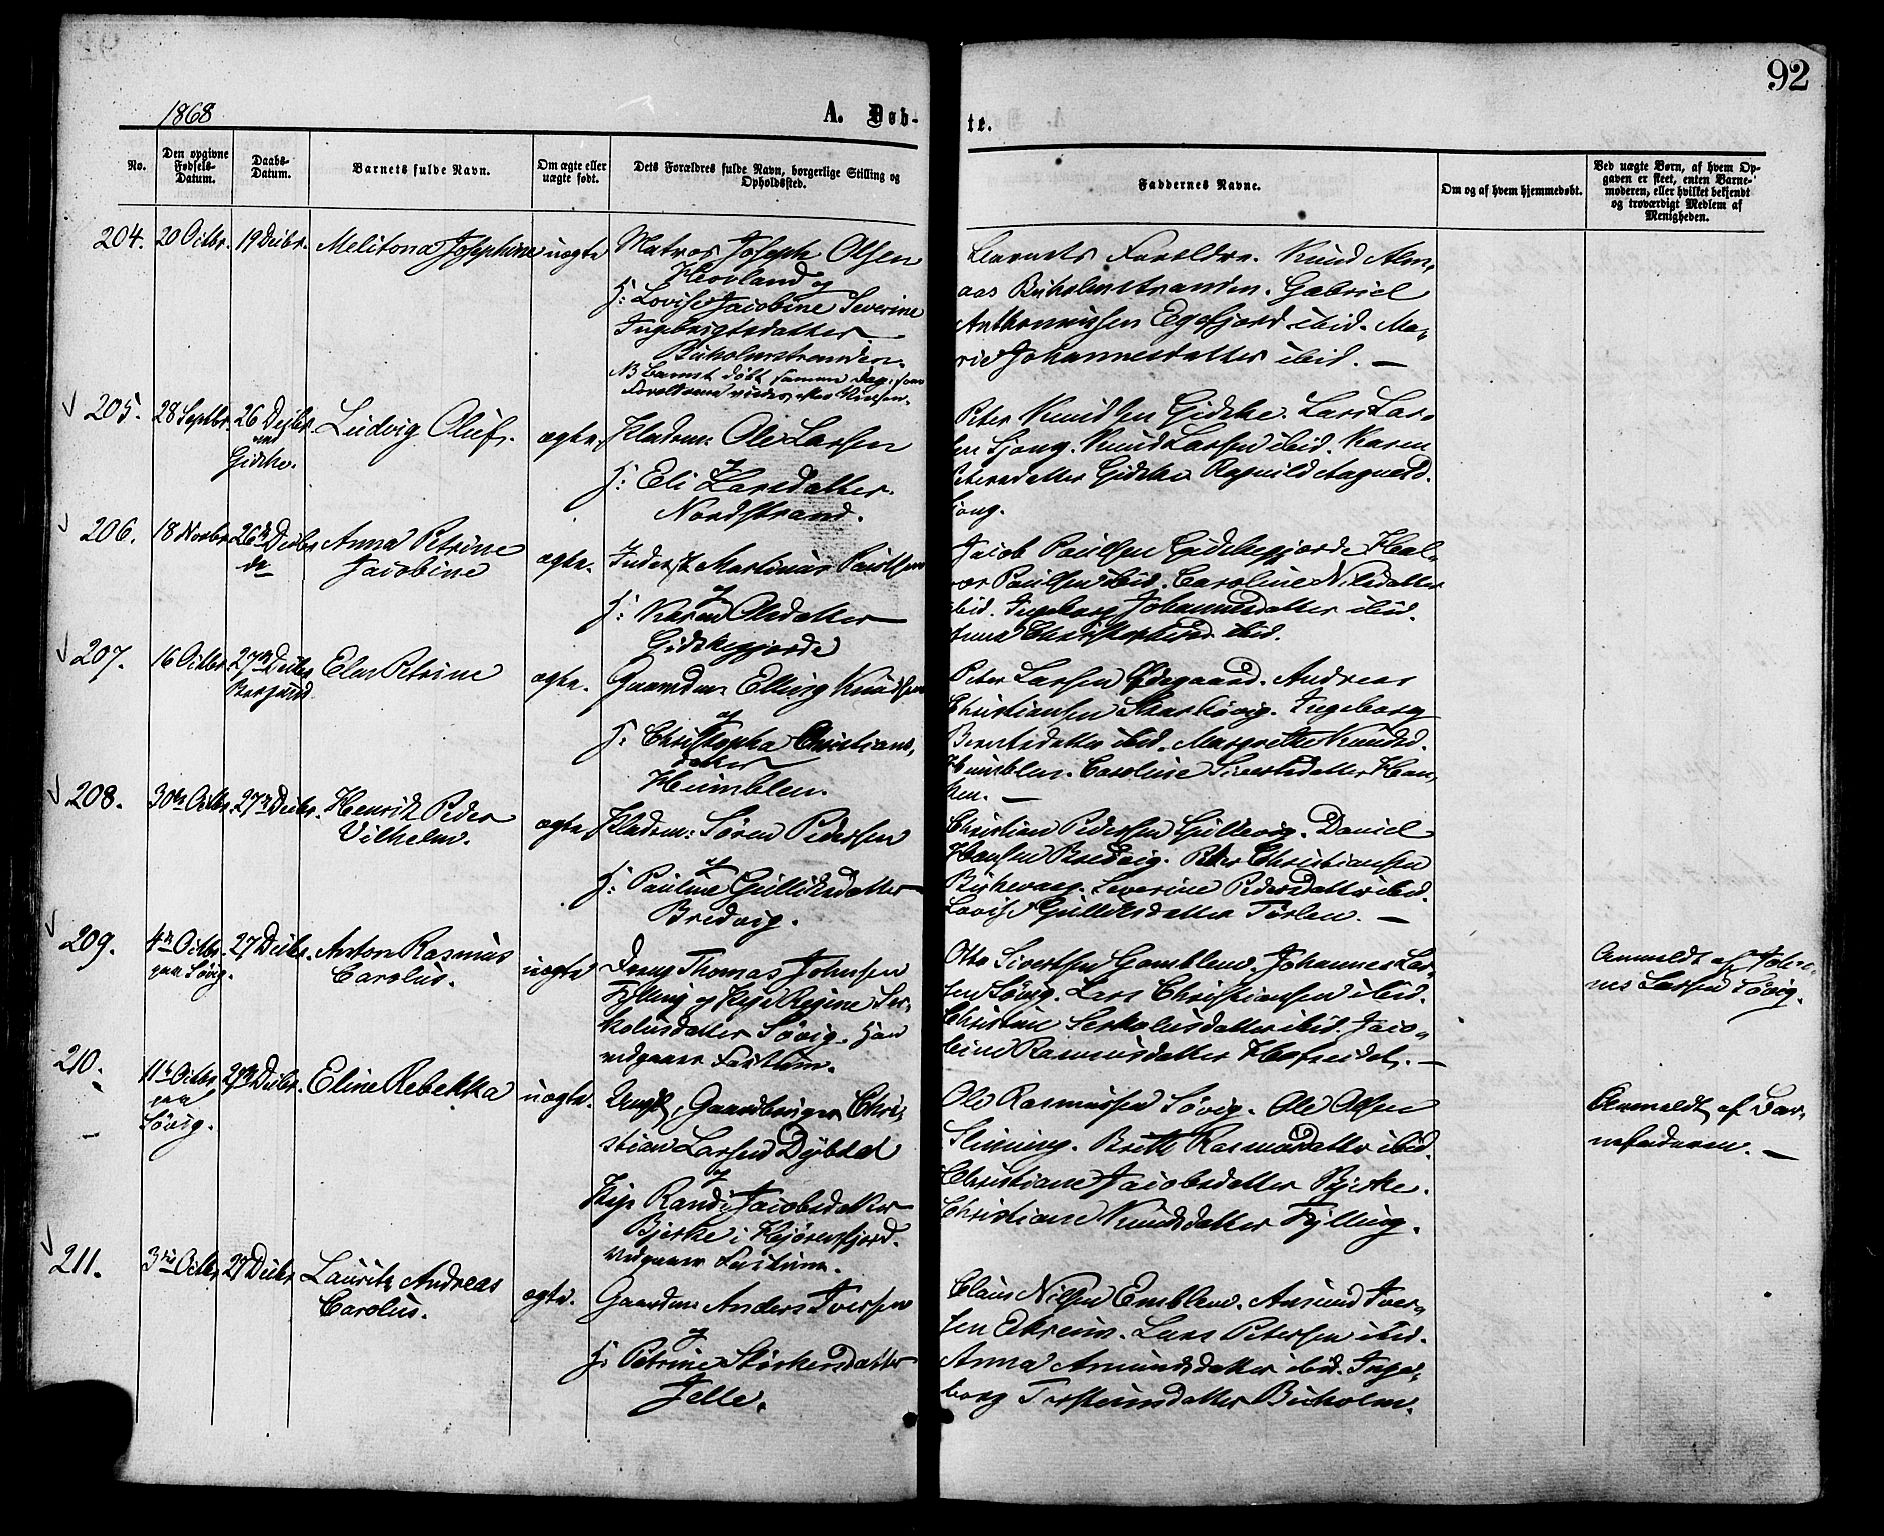 92
1868
A. Døb-
te.
No.
Den opgivne Fødsels-Datum.
Daabs-Datum.
Barnets fulde Navn.
Om ægte eller uægte født.
Dets Forældres fulde Navn, borgerlige Stilling og Opholdssted.
Faddernes Navne.
Om og af hvem hjemmedøbt.
Ved uægte Børn, af hvem Op-
gaven er skeet, enten Barne-
moderen, eller hvilket bekjendt
og troværdigt Medlem af
Menigheden.
204. 20 Octbr. 19 Decbr. Melitona Josephine uægte Matros Joseph Olsen
Hovland og
H: Lovise Jacobine Severine
Ingebrigtsdatter
Buholmstranden.
NB Barnet døbt samme Dag, som
Barnets Forældre. Knud Alm-
aas Buholmstranden. Gabriel
Anthoniusen Egsfjord ibid. Ma-
rie Johannesdatter ibid. —
205. 28 Septbr. 26 Decbr. Ludvig Oluf. ægte. Pladsm: Ole Larsen
Giske.
H: Eli Larsdatter
Nordstrand.
Peter Knudsen Giske. Lars Lar-
sen Gjong. Knud Larsen ibid. Karen
Petersdatter Giske
206. 18 Novbr. 26 Decbr. Anna Petrine
Jacobine
ægte. Inderst Martinus Paulsen
og
H: Karen Olsdatter
Giskegjerde
Jacob Paulsen Giskegjerde Hal-
vor Paulsen ibid. Caroline Nilsdatter
ibid. Ingeborg Johannesdatter ibid.
ibid.
207. 16 Octbr. 27 Decbr. Elen Petrine
Borgund
ægte. Gaardm: Elling Knudsen
og
H: Christopha Christians-
datter
Humblen.
Peter Larsen Ødegaard. Andreas
Christiansen Skarbøvig. Ingeborg
Berntsdatter ibid. Margrethe Knudsd.
Humblen. Caroline Sivertsdatter Han-
ken. —
208. 30te Octbr. 27 Decbr. Henrik Peder
Vilhelm.
ægte Pladsm: Søren Pedersen
og
H: Pauline Gulliksdatter
Bredvig.
Christian Pedersen Gullevig. Daniel
Hansen Bredvig. Peter Christiansen
Severine Pedersdatter ibid.
Lovise Gulliksdatter Tørlen. —
209. 4de Octbr. 27 Decbr. Anton Rasmus
paa Søvig. Carolus.
uægte Dreng Thomas Johnsen
Fylling og Pige Regine Ser-
kolusdatter Søvig. Han
Otto Sivertsen Gamblem. Johannes Lar-
sen Søvig. Lars Christiansen ibid.
Christine Serkolusdatter ibid. Jaco-
bine Rasmusdatter Hofseidet. —
Anmeldt af
Larsen Søvig.
210. 11te Octbr. 27 Decbr. Eline Rebekka
paa
Søvig.
uægte. Ungk., Gaardbruger Chri-
stian Larsen Dybdal
og
Pige Randi Jacobsdatter
Bjerke i Hjørensfjord.
Ole Rasmussen Søvig. Ole Olsen
Slinning. Brith Rasmusdatter ibid.
Christiane Jacobsdatter Bjerke.
Christiane Knudsdatter Fylling.
Anmeldt af Bar-
nefaderen. —
211. 3die Octbr. 27 Decbr. Lauritz Andreas
Carolus.
ægte. Gaardm: Anders Iversen
og
H: Petrine Størkersdatter
Jelle.
Claus Nilsen Emblem. Amund Iver-
sen Lars Petersen ibid.
Anna Amundsdatter ibid. Inge-
borg Torsteinsdatter Buholm.